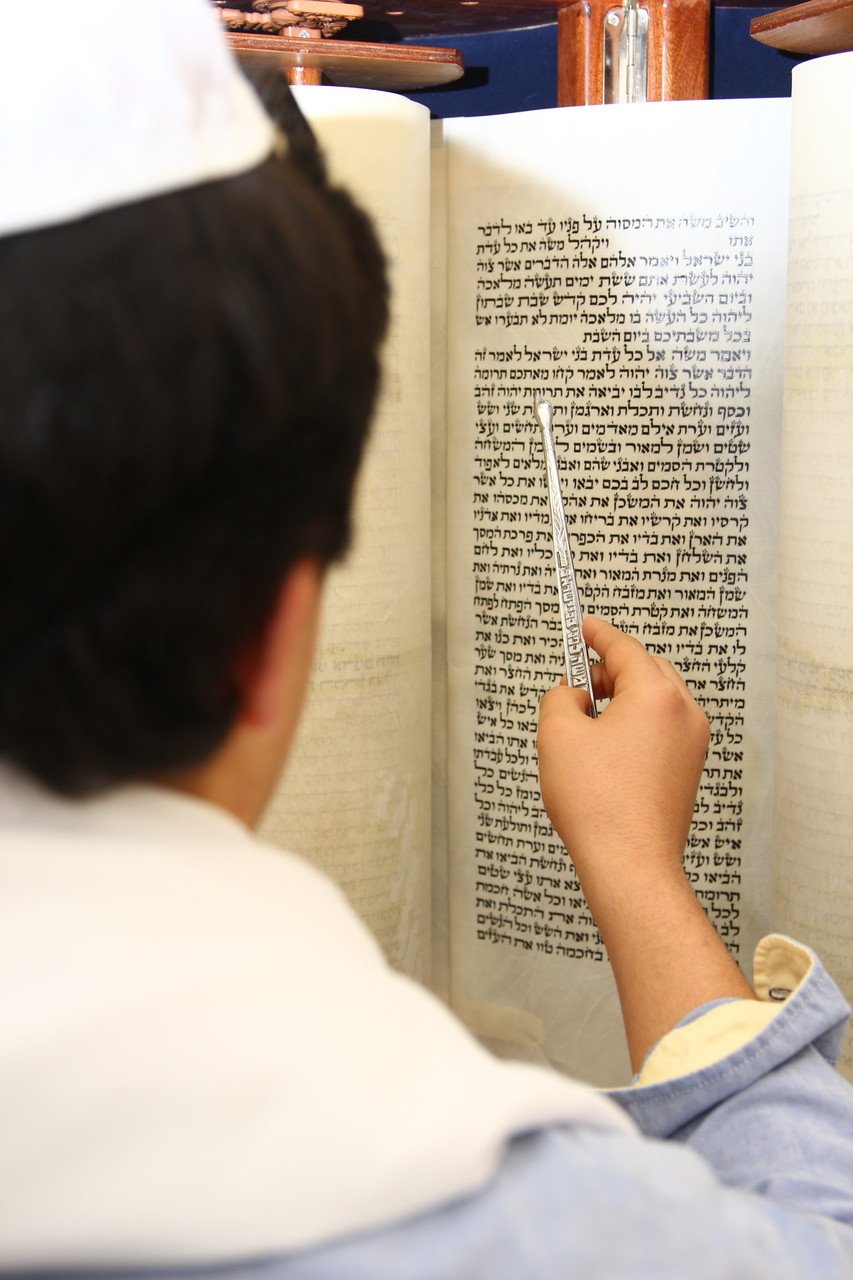 והשיב משה את המסוה על פניו עד באו לדבר
אתו ויקהל משה את כל עדת
בני ישראל ויאמר אלהם אלה הדברים אשר צוה
יהוה לעשת אתם ששת ימים תעשה מלאכה
וביום השביעי יהיה לכם קדש שבת שבתון
ליהוה כל העשה בו מלאכה יומת לא תבערו אש
בכל משבתיכם ביום השבת
ויאמר משה אל כל עדת בני ישראל לאמר זה
הדבר אשר צוה יהוה לאמר קחו מאתכם תרומה
ליהוה כל נדיב לבו יביאה את תרומת יהוה זהב
וכסף ונחשת ותכלת וארגמן שני ושש
ועזים וערת אילם מאדמים תחשים ועצי
שטים ושמן למאור ובשמים המשחה
ולקטרת הסמים ואבני שהם מלאים לאפוד
ולחשן וכל חכם לב בכם יבאו את כל אשר
צוה יהוה את המשכן את את מכסהו את
קרסיו ואת קרשיו את בריחו ואת אדניו
את הארן ואת בדיו את פרכת המסך
את השלחן ואת בדיו ואת כליו ואת לחם
הפנים ואת מנרת המאור ואת נרתיה ואת
שמן המאור ואת מזבח ואת בדיו ואת שמן
המשחה ואת קטרת הסמים מסך הפתח לפתח
המשכן את מזבח הנחשת אשר
לו את בדיו ואת כל הכיר ואת כנו את
קלעי החצר ואת מסך שער
החצר את יתדת החצר ואת
את בגדי
כל לכהן ויצאו
כל איש
אשר אתו הביאו
ולכל עבדתו
הנשים כל
נדיב כל כלי
זהב וכל ליהוה וכל
איש אשר ותולעת שני
ושש וערת תחשים
הביאו ונחשת הביאו את
אתו עצי שטים
לכל וכל אשה חכמת
לב את התכלת ואת
ואת השש וכל הנשים
בחכמה טוו את העזים